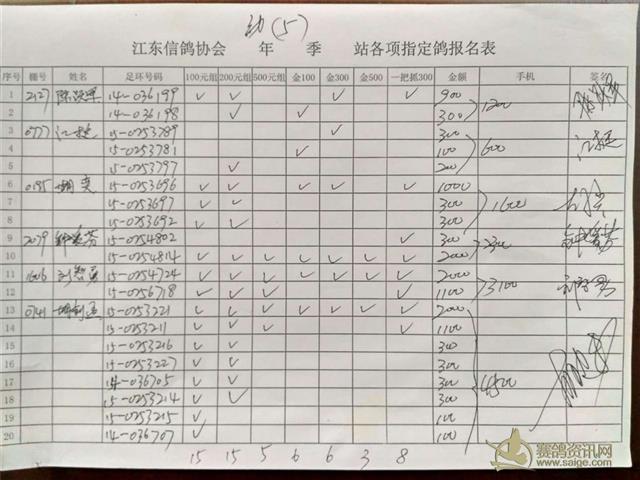 幼(5)
江东信鸽协会 年 季 站各项指定鸽报名表
序号 棚号 姓名 足环号码 100元组 200元组 500元组 金100 金300 金500 一把抓300 金额 手机 签名
1 2127 14-036199 ✓ ✓ ✓ ✓ 900
2 14-036198 ✓ ✓ 300 1200
3 0777 15-0253789 ✓ 300
4 15-0253781 ✓ 100 600
5 15-0253797 ✓ 200
6 0195 胡奕 15-0253696 ✓ ✓ ✓ ✓ ✓ 1000
7 15-0253697 ✓ ✓ 300 1600
8 15-0253692 ✓ ✓ 300
9 2079 15-0254802 ✓ 300 2300
10 15-0254814 ✓ ✓ ✓ ✓ ✓ ✓ ✓ 2000
11 1606 15-0254724 ✓ ✓ ✓ ✓ ✓ ✓ ✓ 2000 3100
12 15-0256718 ✓ ✓ ✓ ✓ 1100
13 0141 15-0253221 ✓ ✓ ✓ ✓ ✓ ✓ ✓ 2000
14 15-0253211 ✓ ✓ ✓ ✓ 1100
15 15-0253216 ✓ ✓ 300
16 15-0253227 ✓ ✓ 300
17 14-036705 ✓ ✓ 300
18 15-0253214 ✓ ✓ 300
19 15-0253215 ✓ 100
20 14-036707 ✓ 100
15 15 5 6 6 3 8
赛鸽资讯网
www.saige.com